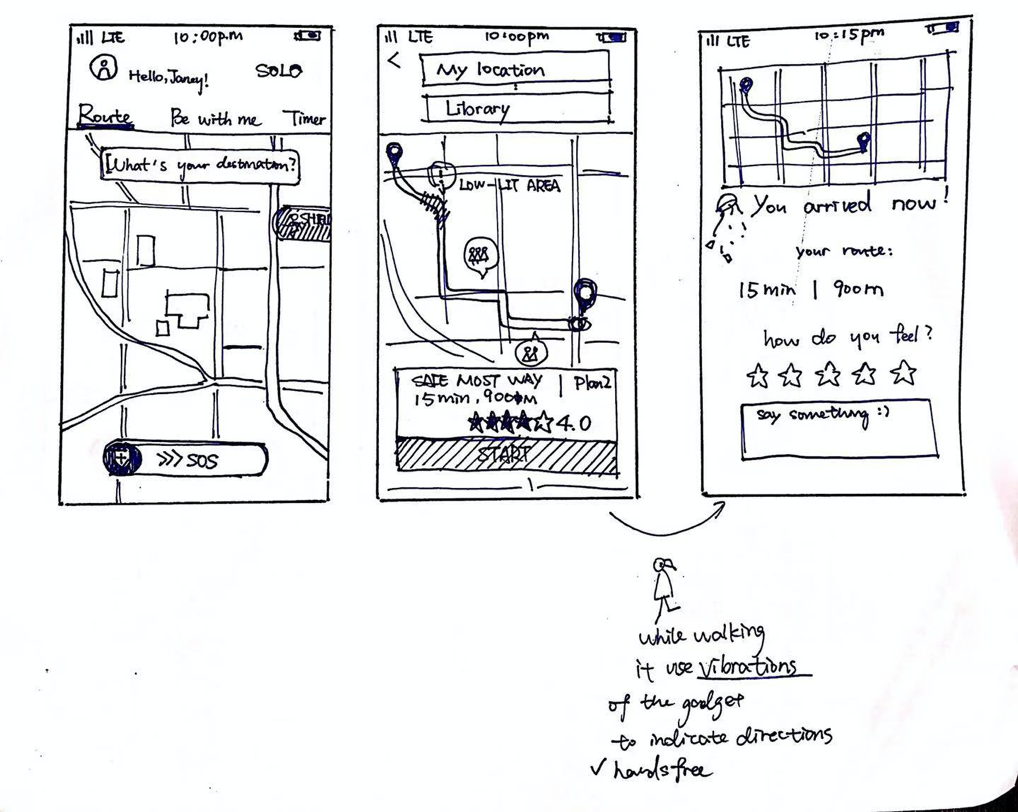 LTE 10:00p.m
Hello, Janey!
SOLO
Route Be with me Timer
What's your destination?
>>> SOS
LTE 10:00pm
<
My location
Library
LOW-LIT AREA
SAFE MOST WAY | Plan2
15min, 900m
4.0
START
LTE 10:15pm
You arrived now!
your route:
15min | 900m
how do you feel?
say something :)
while walking
it use vibrations
of the gadget
to indicate directions
✓ handsfree